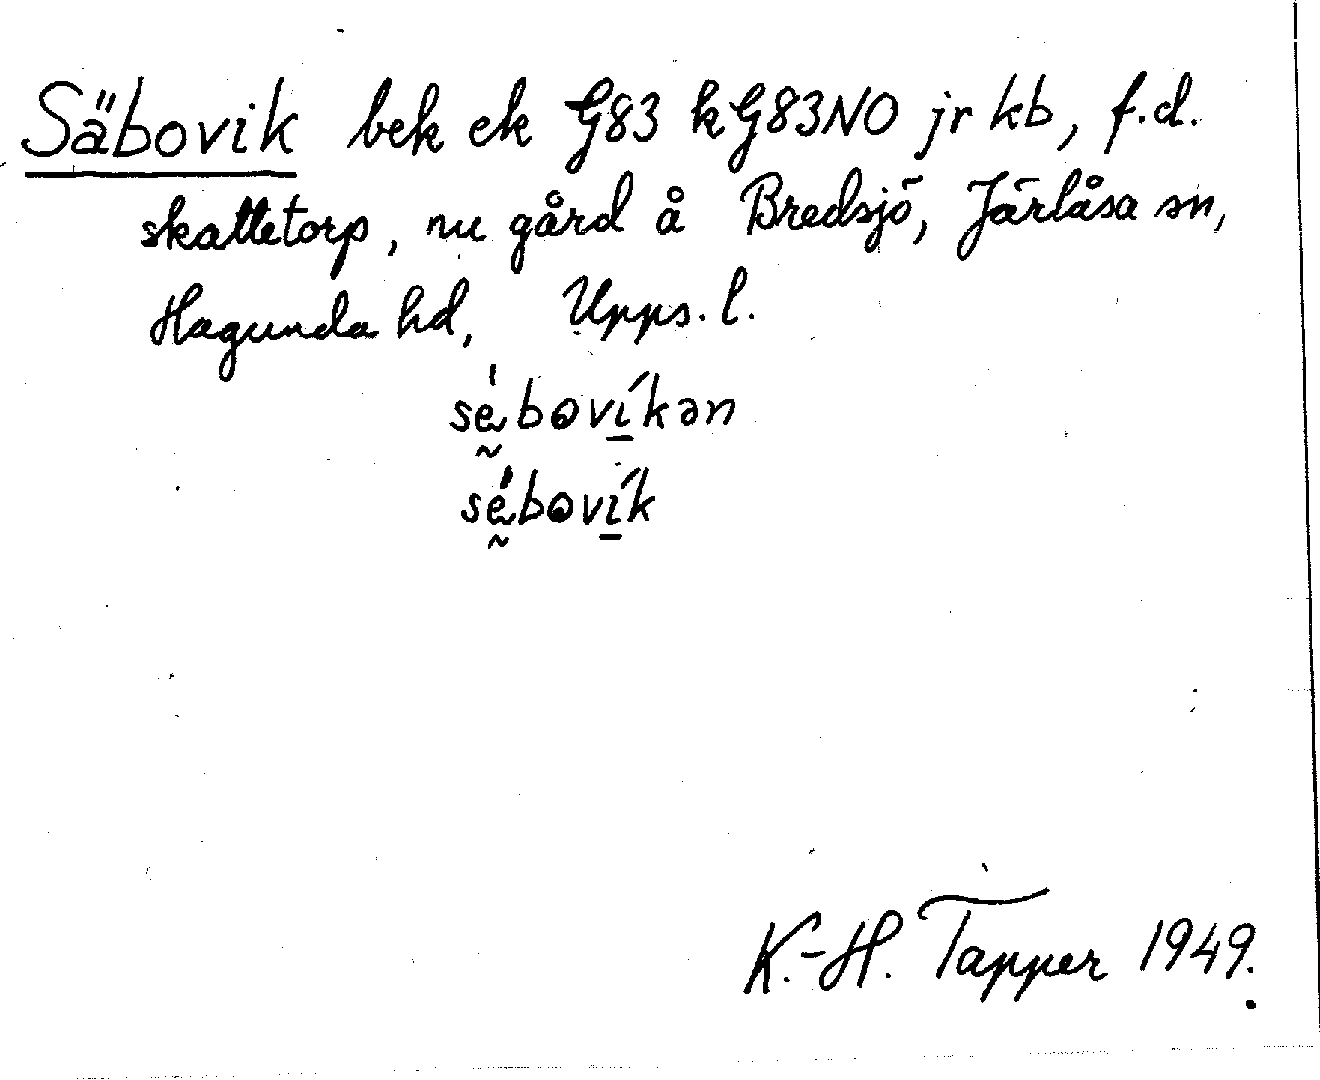 Säbovik bek ek G83 kG83NO jr kb, f.d.
skattetorp, nu gård å Bredsjö, Järlåsa sn,
Hagunda hd, Upps. l.
sébovíkən
sébovík
K.-H. Tapper 1949.